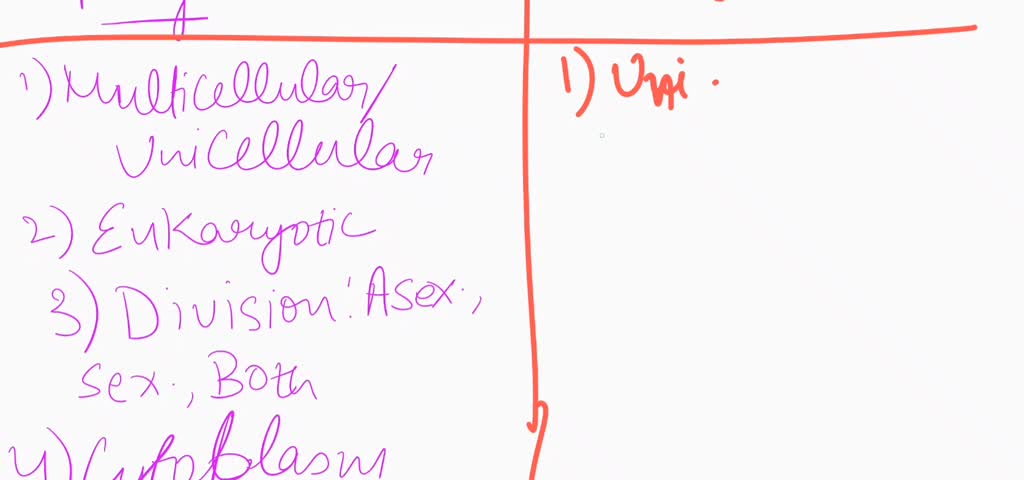 1) Multicellular/
Unicellular
2) Eukaryotic
3) Division: Asex.,
sex., Both
4) Cytoplasm
1) Uni.